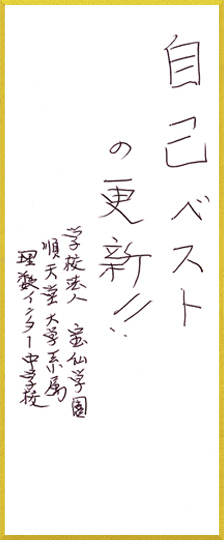 自己ベスト
の更新!!
学校法人 宝仙学園
順天堂大学系属
理数インター中学校